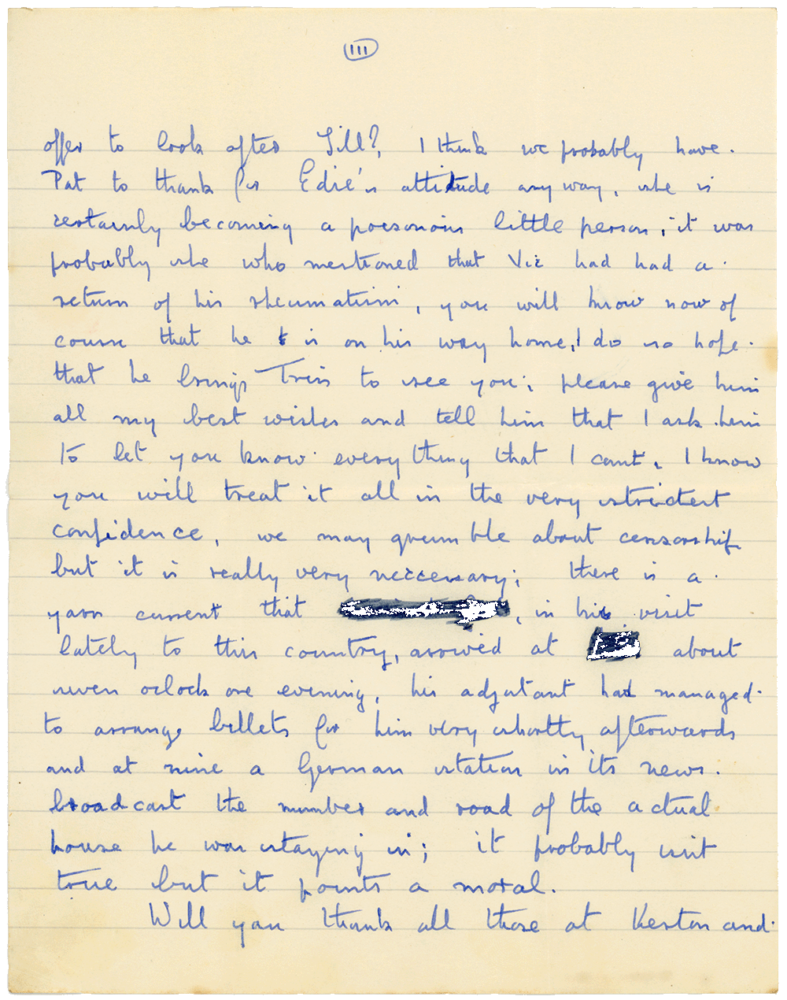 III
offer to look after Jill?, I think we probably have.
Pat to thank for Edie's attitude anyway, she is
certainly becoming a poisonous little person, it was
probably she who mentioned that Vic had had a
return of his rheumatism, you will know now of
course that he is on his way home, I do so hope.
that he brings Tris to see you; please give him
all my best wishes and tell him that I ask him
to let you know everything that I cant. I know
you will treat it all in the very strictest
confidence, we may grumble about censorship
but it is really very neccessary; there is a
yarn current that , in his visit
lately to this country, arrived at about
seven oclock one evening, his adjutant had managed
to arrange billets for him very shortly afterwards
and at nine a German station in its news.
broadcast the number and road of the actual
house he was staying in; it probably isnt
true but it points a moral.
Will you thank all those at Keston and